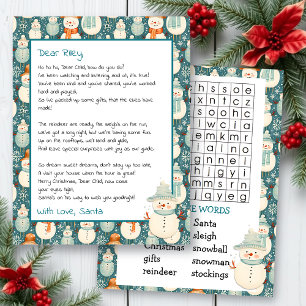 Dear Riley,
Ho ho ho, Dear Child, how do you do?
I've been watching and listening, and oh, it's true!
You've been kind and you've shared, you've worked
hard and played,
So I've packed up some gifts, that the elves have
made!
The reindeer are ready, the weigh's on the run,
We've got a long night, but we're having some fun.
Up on the rooftops, we'll land and glide,
And leave special surprises with joy as our guide.
So dream sweet dreams, don't stay up too late,
I'll visit your house when the hour is great!
Merry Christmas, Dear Child, now close
your eyes tight,
Santa's on his way to wish you goodnight!
With Love, Santa
h s s a e
o e n t c
s x n f z
r c a o d
j a l o i
g n n e i
i e n g y
e m m s r
l n a y g
E WORDS
Santa
sleigh
Christmas snowball
gifts snowman
reindeer stockings